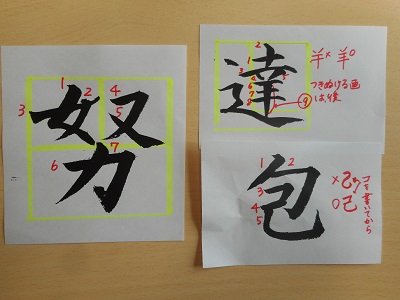 努
1 2 3 4 5 6 7
達
羊× 羊○
つきぬける画
は、後
9
包
1 2 3 4 5
×己
○己
コを書いてから